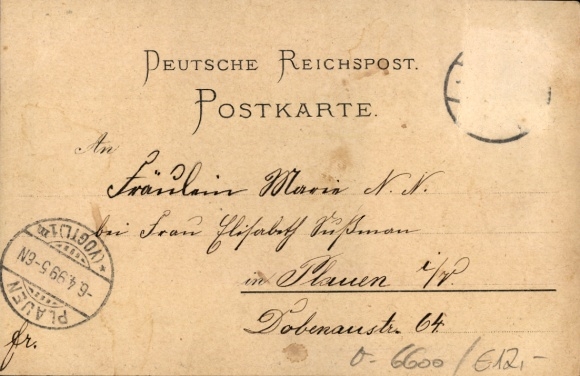 DEUTSCHE REICHSPOST.
POSTKARTE.
An
Fräulein Marie N. N.
bei Frau Elisabeth Sußman
in Plauen i/V.
Dobenaustr. 64
fr.
PLAUEN
-6.4.99.5-6N
*(VOGTL.)1m
0-6600/€12,-